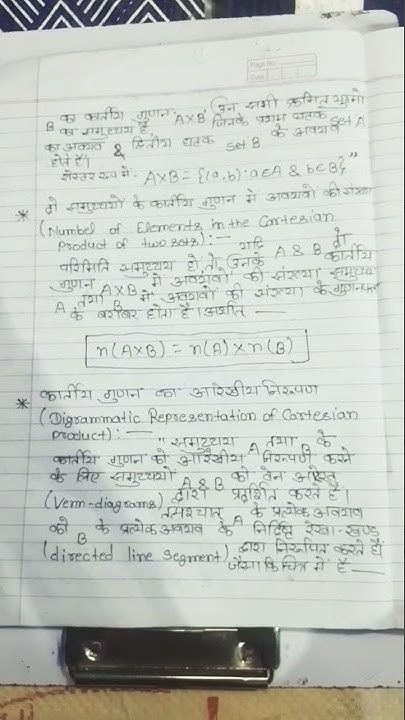 Page No.
Date
B का कार्तीय गुणन, A×B, उन सभी क्रमित युग्मों
का समुच्चय है, जिनके प्रथम घटक set A
का अवयव & द्वितीय घटक set B के अवयव
होते हैं।
A×B = {(a,b): a∈A & b∈B}"
* दो समुच्चयों के कार्तीय गुणन में अवयवों की संख्या
(Number of Elements in the Cartesian
Product of two sets):— यदि A & B दो
परिमित समुच्चय हो, तो उनके कार्तीय
गुणन A×B में अवयवों की संख्या समुच्चय
A तथा B में अवयवों की संख्या के गुणनफल
के बराबर होता है। अर्थात —
n(A×B) = n(A) × n(B)
* कार्तीय गुणन का आरेखीय निरूपण
(Digrammatic Representation of Cartesian
product):— " समुच्चय A तथा B के
कार्तीय गुणन को आरेखीय निरूपण करने
के लिए समुच्चयों A & B को वेन आरेख
(Venn-diagrams) द्वारा प्रदर्शित करते हैं।
तत्पश्चात् A के प्रत्येक अवयव
को B के प्रत्येक अवयव के निर्दिष्ट रेखा-खण्ड
(directed line segment) द्वारा निरूपित करते हैं
जैसा कि चित्र में है —